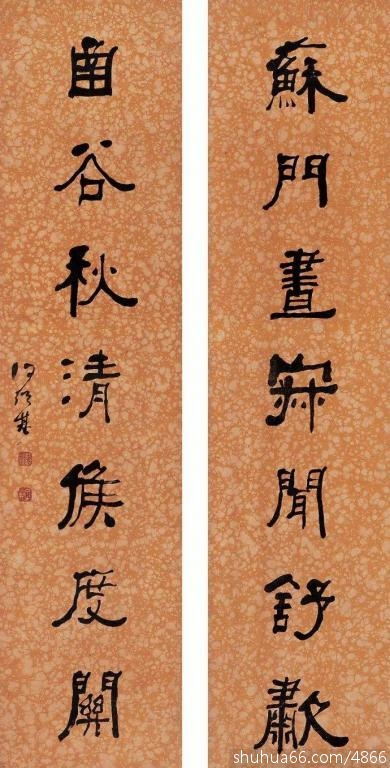 蘇門晝寂聞舒歗
函谷秋清候度關
何紹基
shuhua66.com/4866